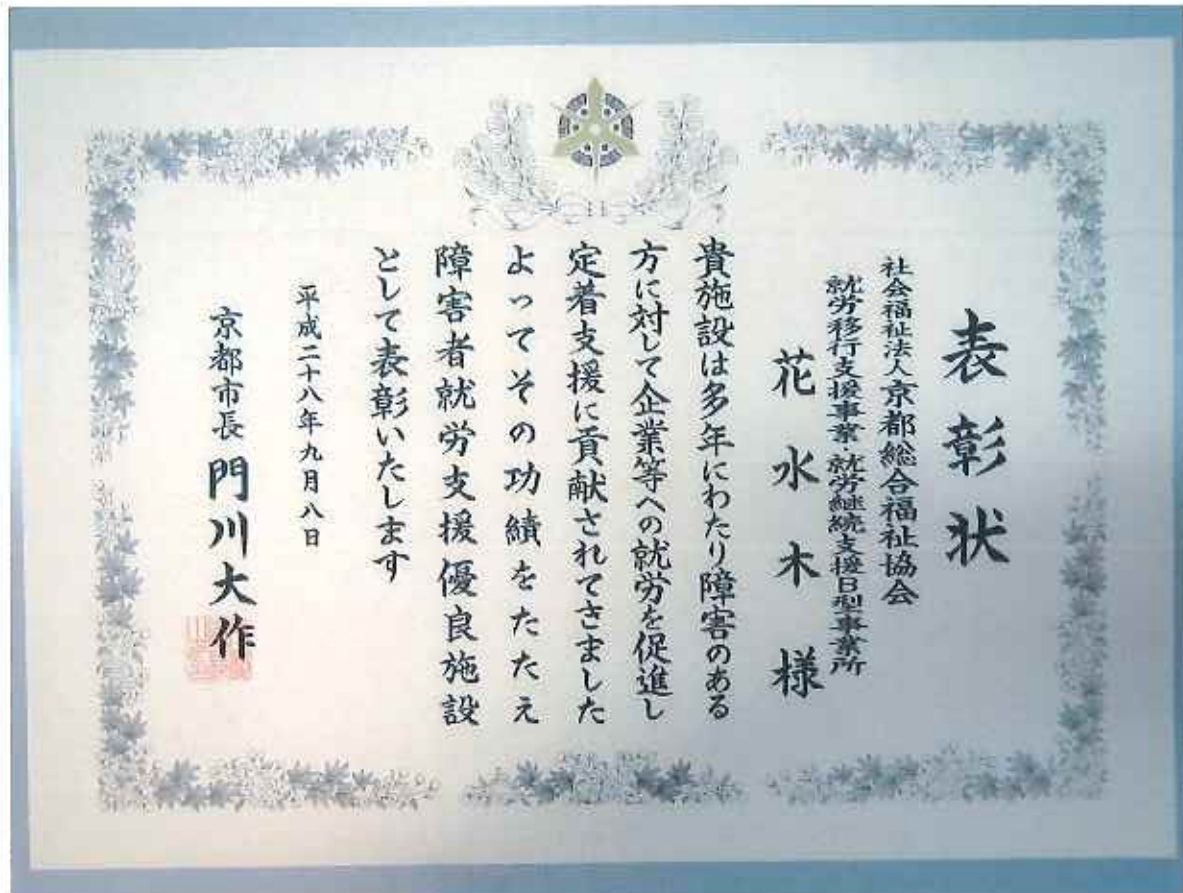 表彰状
社会福祉法人京都総合福祉協会
就労移行支援事業・就労継続支援B型事業所
花水木様
貴施設は多年にわたり障害のある
方に対して企業等への就労を促進し
定着支援に貢献されてきました
よってその功績をたたえ
障害者就労支援優良施設
として表彰いたします
平成二十八年九月八日
京都市長 門川大作